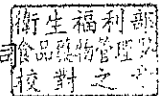 衛生福利部
食品藥物管理署
校對之